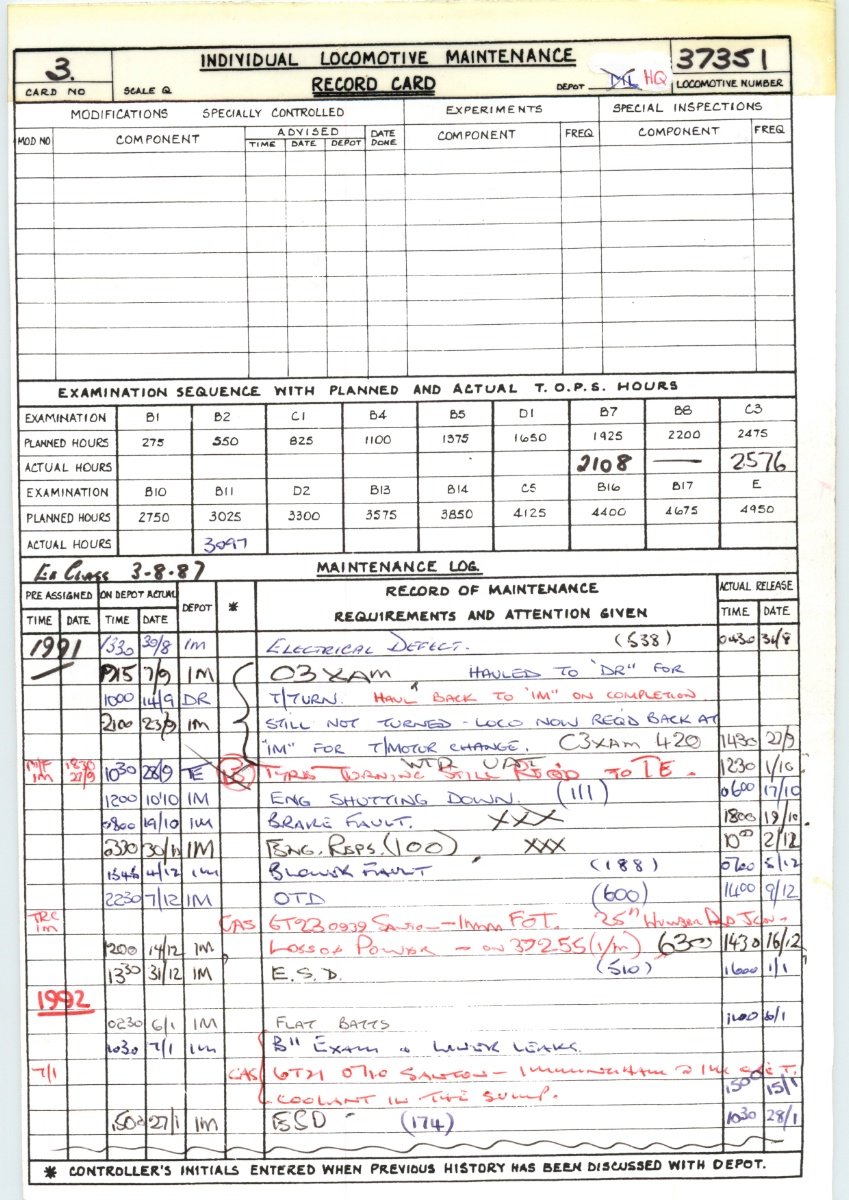 3. INDIVIDUAL LOCOMOTIVE MAINTENANCE 37351
CARD NO SCALE Q RECORD CARD DEPOT HQ LOCOMOTIVE NUMBER
MODIFICATIONS SPECIALLY CONTROLLED EXPERIMENTS SPECIAL INSPECTIONS
MOD NO COMPONENT ADVISED DATE DONE COMPONENT FREQ COMPONENT FREQ
TIME DATE DEPOT
EXAMINATION SEQUENCE WITH PLANNED AND ACTUAL T.O.P.S. HOURS
EXAMINATION B1 B2 C1 B4 B5 D1 B7 B8 C3
PLANNED HOURS 275 550 825 1100 1375 1650 1925 2200 2475
ACTUAL HOURS 2108 — 2576
EXAMINATION B10 B11 D2 B13 B14 C5 B16 B17 E
PLANNED HOURS 2750 3025 3300 3575 3850 4125 4400 4675 4950
ACTUAL HOURS 3097
Ex Class 3-8-87 MAINTENANCE LOG.
PRE ASSIGNED ON DEPOT ACTUAL DEPOT * RECORD OF MAINTENANCE ACTUAL RELEASE
TIME DATE TIME DATE REQUIREMENTS AND ATTENTION GIVEN TIME DATE
1991 1330 30/8 IM ELECTRICAL DEFECT. (538) 0430 31/8
1915 7/9 IM O3 XAM HAULED TO "DR" FOR
1000 14/9 DR T/TURN. HAUL BACK TO "IM" ON COMPLETION
2100 23/9 IM STILL NOT TURNED - LOCO NOW REQ'D BACK AT
"IM" FOR T/MOTOR CHANGE. C3XAM 420 1430 27/9
IM 1830 27/9 1030 28/9 TE TYRE TURNING STILL REQ'D TO TE. 1230 1/10
1200 10/10 IM ENG SHUTTING DOWN. (111) 0600 17/10
0800 19/10 IM BRAKE FAULT. XXX 1800 19/10
2330 30/11 IM ENG. REPS. (100) XXX 1000 2/12
4/12 IM BLOWER FAULT (188) 5/12
2230 7/12 IM OTD (600) 1400 9/12
IM CAS 6T23 0939 SANTON - IMM FOT. 25"
1200 14/12 IM LOSS OF POWER - ON 37255 (1/M) 6300 1430 16/12
1330 31/12 IM E.S.D. (510) 1600 1/1
1992
0230 6/1 IM FLAT BATTS 6/1
1030 7/1 IM B11 EXAM + LINER LEAKS.
7/1 CAS 6T21 0710 SANTON - IMMINGHAM
COOLANT IN THE SUMP. 1500 15/1
1502 27/1 IM ESD (174) 1030 28/1
* CONTROLLER'S INITIALS ENTERED WHEN PREVIOUS HISTORY HAS BEEN DISCUSSED WITH DEPOT.